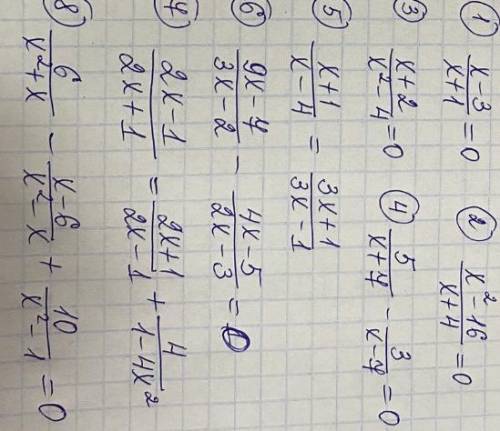 ① (x-3)/(x+1) = 0 ② (x²-16)/(x+4) = 0
③ (x+2)/(x²-4) = 0 ④ 5/(x+4) - 3/(x-4) = 0
⑤ (x+1)/(x-4) = (3x+1)/(3x-1)
⑥ (9x-4)/(3x-2) - (4x-5)/(2x-3) = 0
⑦ (2x-1)/(2x+1) = (2x+1)/(2x-1) + 4/(1-4x²)
⑧ 6/(x²+x) - (x-6)/(x²-x) + 10/(x²-1) = 0